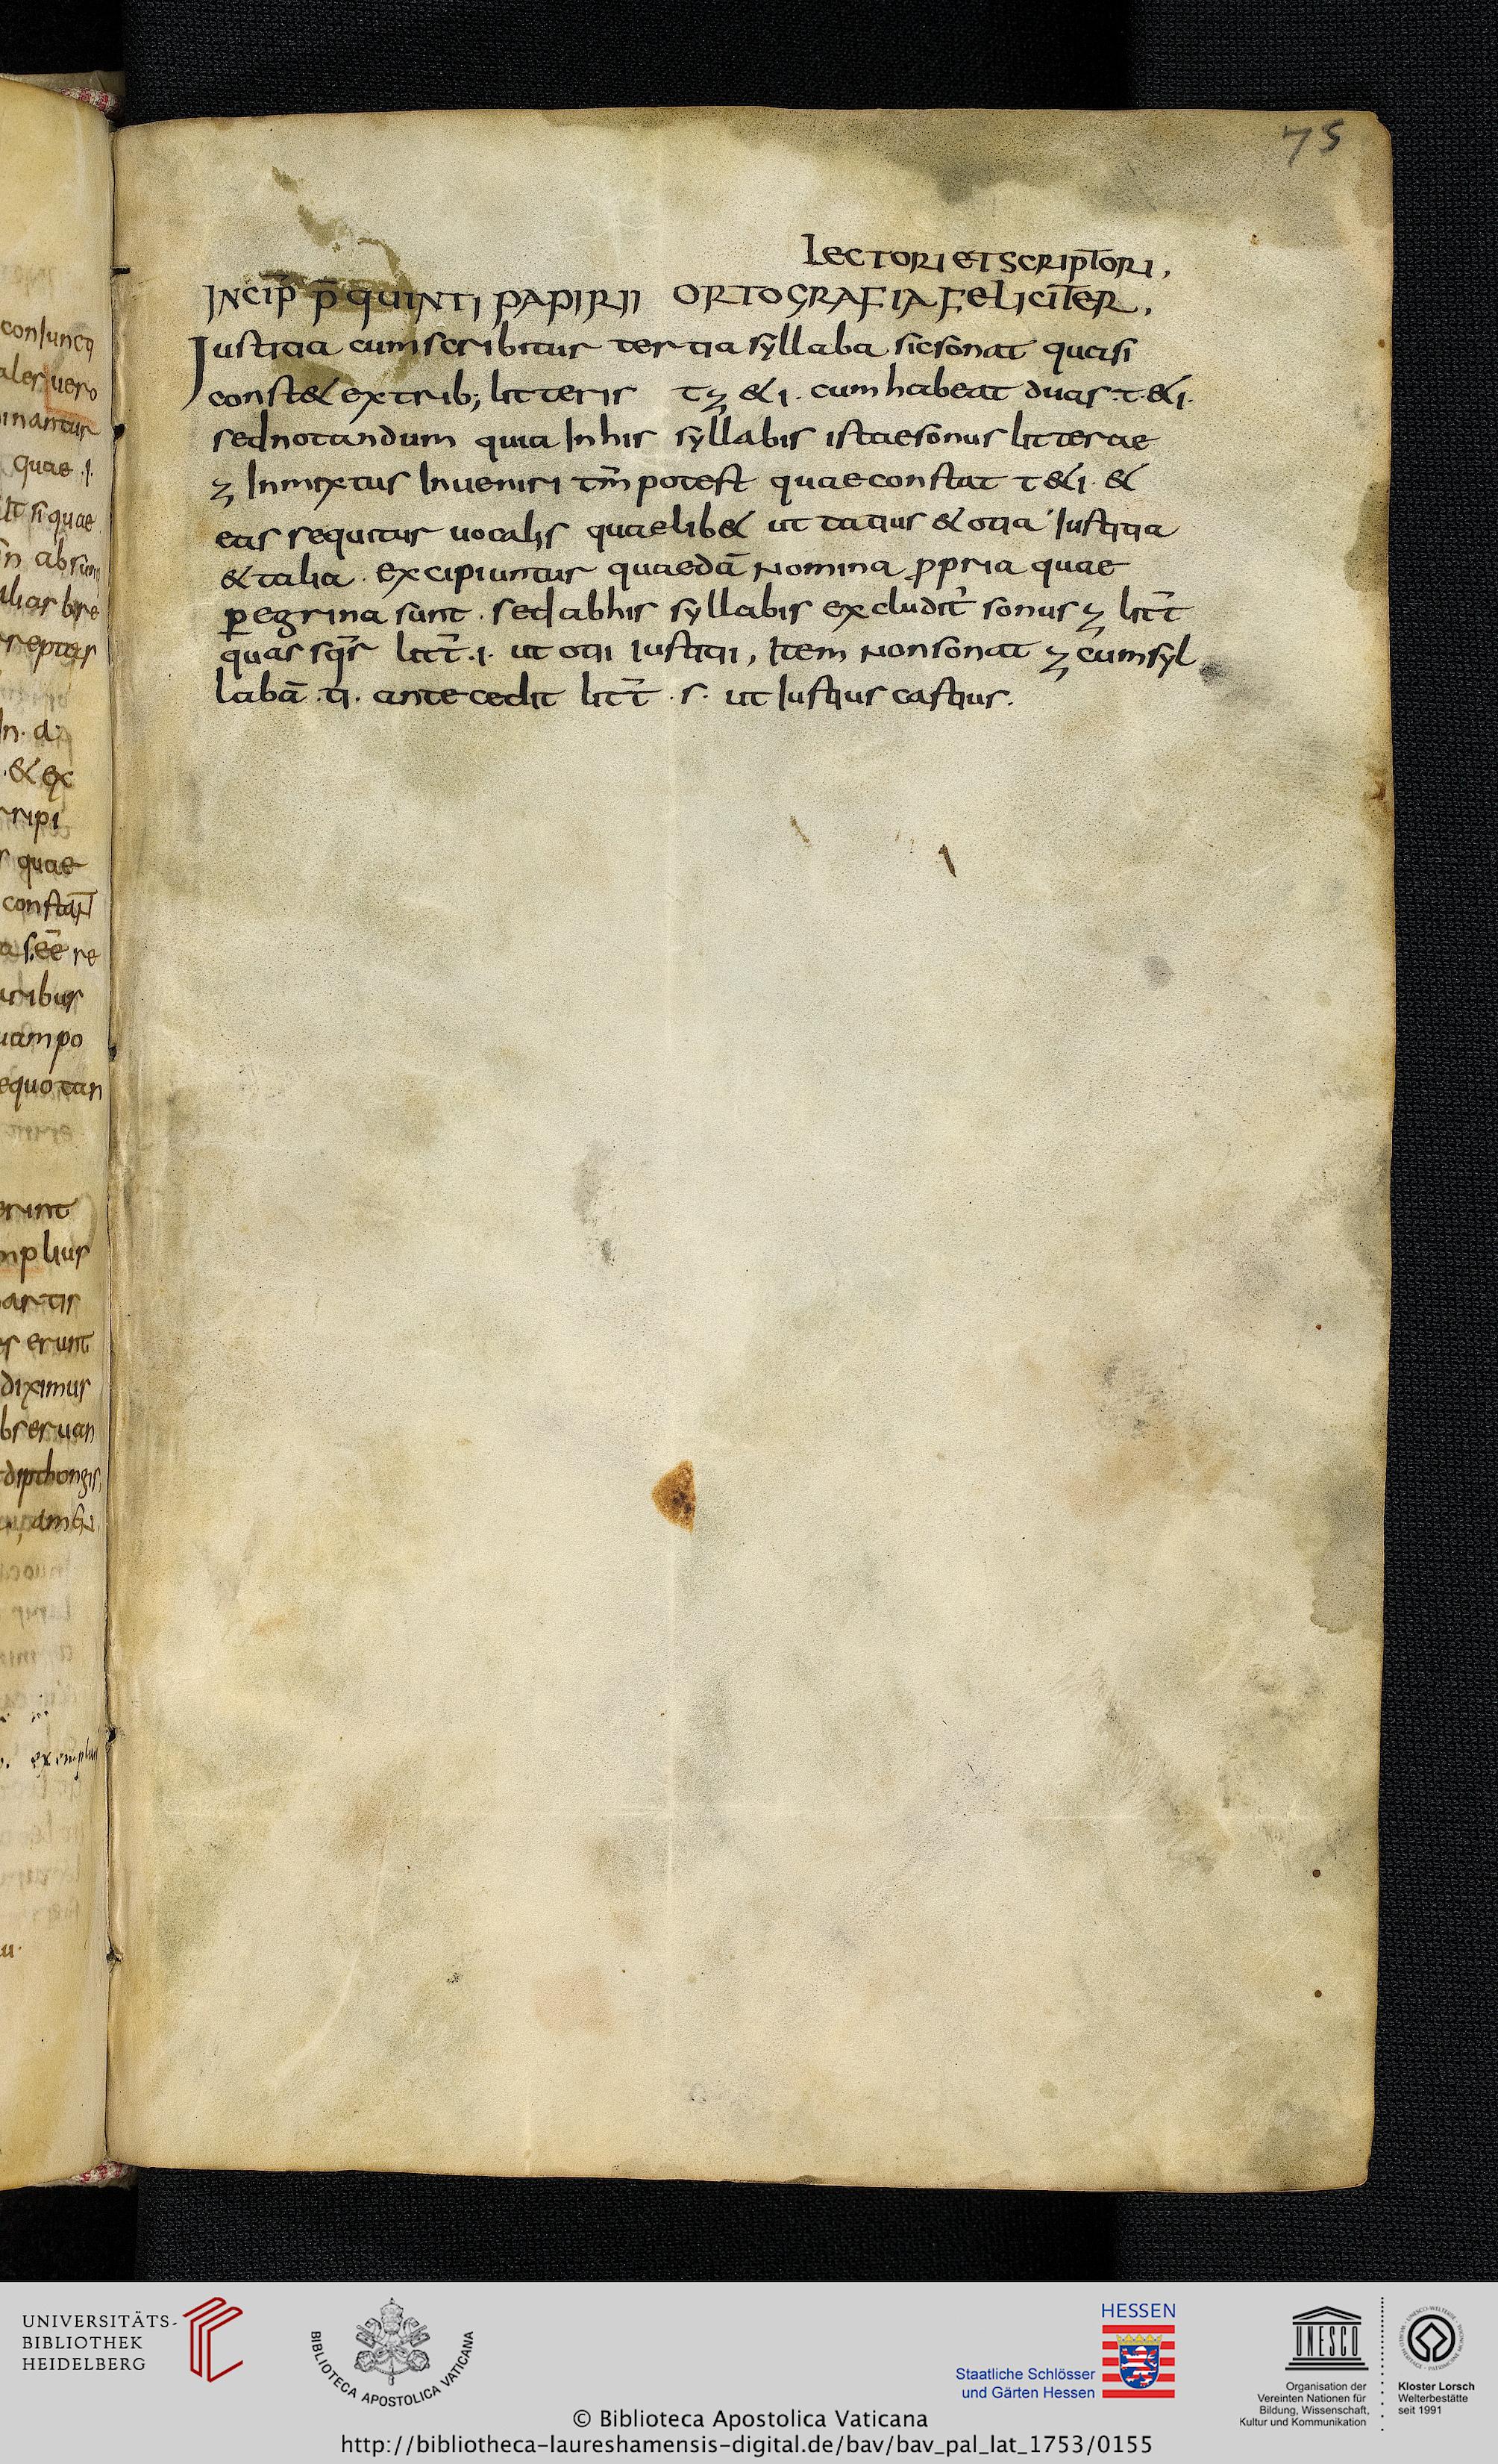 75
lectori et scriptori,
INCIP̄ P̄ QUINTI PAPIRII ORTOGRAFIA FELICITER.
Iustitia cum scribitur tertia syllaba sic sonat quasi
const& ex trib; litteris tz &i. cum habeat duas .t.&i.
sed notandum quia In his syllabis istae sonus litterae
z Inmixtus Inueniri tm̄ potest quae constat t &i. &
eas sequitur uocalis quaelib& ut tatius & otia Iustitia
& talia. excipiuntur quaedā Nomina ꝓpria quae
ꝑegrina sunt. sed ab his syllabis excludit̄ sonus z litt̄
quas sqr̄ litt̄ .i. ut otii Iustitii, Item Non sonat z cum syl
labā .ti. antecedit litt̄ .s. ut Iustius castius.
conIuncti
ales uero
inantur
quae .i.
si quae
quae
ribus
uam po
erunt
mplius
artis
erunt
diximus
obseruan
dipthongis
UNIVERSITÄTS-
BIBLIOTHEK
HEIDELBERG
BIBLIOTECA APOSTOLICA VATICANA
HESSEN
Staatliche Schlösser
und Gärten Hessen
UNESCO
Organisation der
Vereinten Nationen für
Bildung, Wissenschaft,
Kultur und Kommunikation
Kloster Lorsch
Welterbestätte
seit 1991
© Biblioteca Apostolica Vaticana
http://bibliotheca-laureshamensis-digital.de/bav/bav_pal_lat_1753/0155